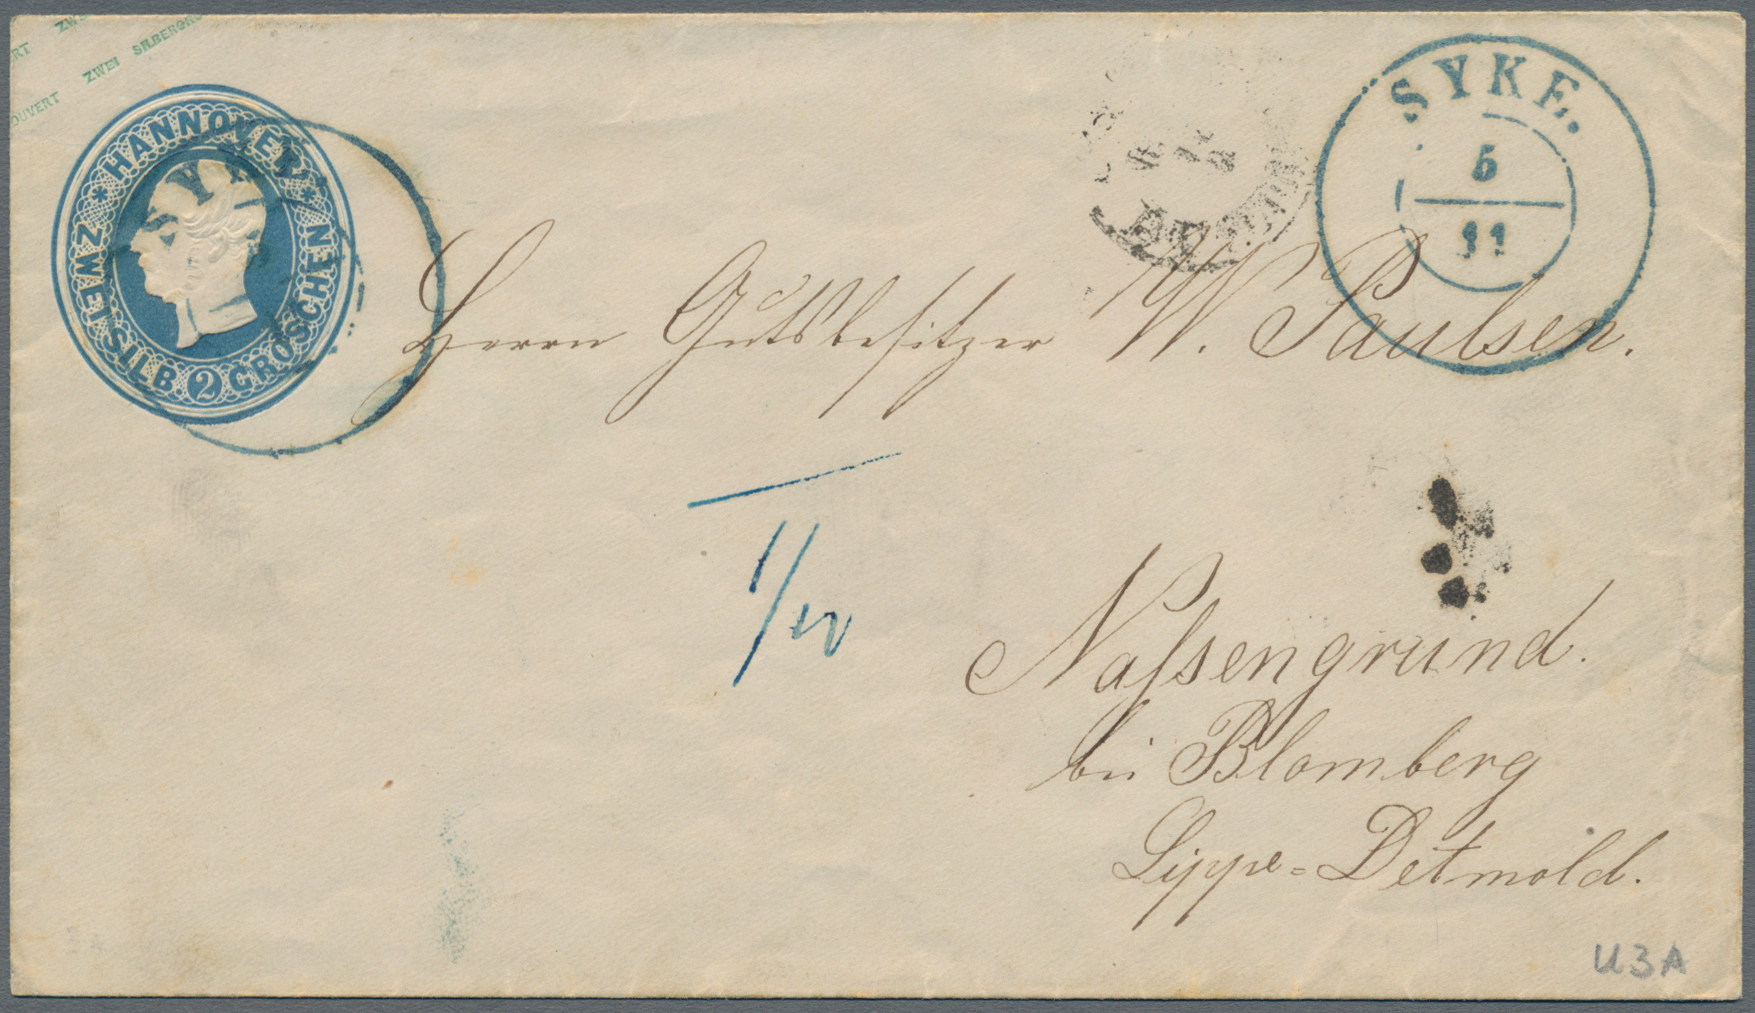 ZWEI SILBERGRO
OUVERT
HANNOVER
ZWEI SILB. 2 GROSCHEN
SY
SYKE.
5
11
Herrn Gutsbesitzer W. Paulsen.
1/10
Nassengrund.
bei Blomberg
Lippe-Detmold.
U3A